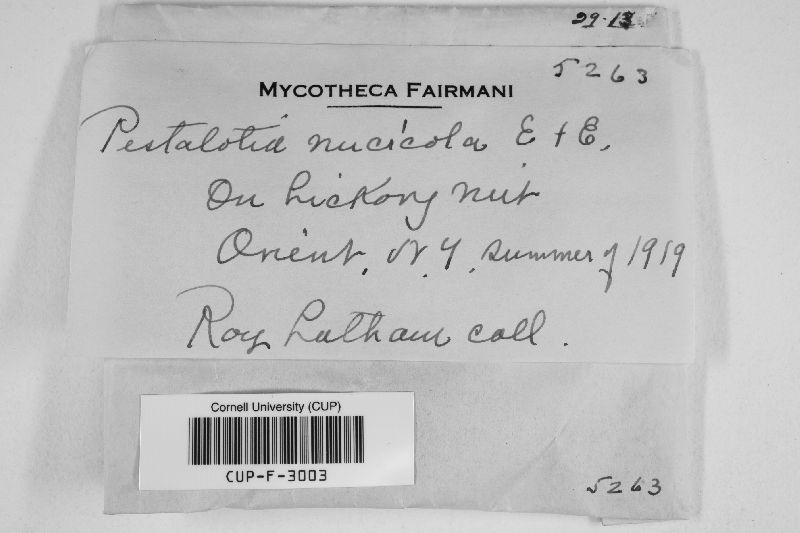 29.13
5263
MYCOTHECA FAIRMANI
Pestalotia nucicola E + E.
On hickory nut
Orient, N.Y. summer of 1919
Roy Latham coll.
Cornell University (CUP)
CUP-F-3003
5263